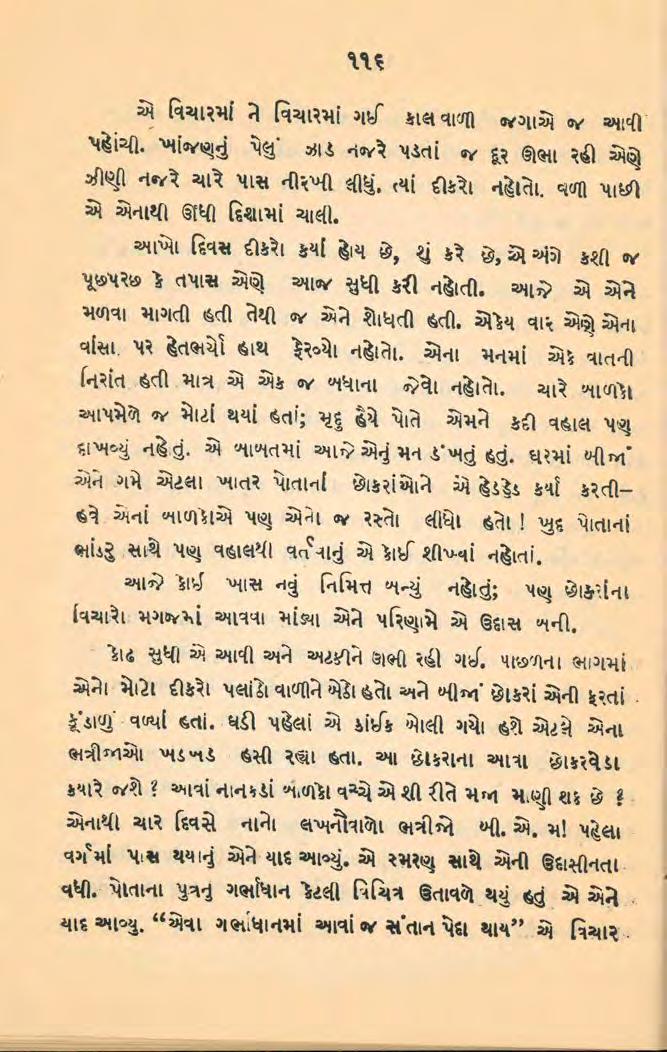 ૧૧૬
એ વિચારમાં ને વિચારમાં ગઈ કાલ વાળી જગાએ જ આવી
પહોંચી. ખાંજણનું પેલું ઝાડ નજરે પડતાં જ દૂર ઊભા રહી એણે
ઝીણી નજરે ચારે પાસ નીરખી લીધું. ત્યાં દીકરો નહોતો. વળી પાછી
એ એનાથી ઊંધી દિશામાં ચાલી.
આખો દિવસ દીકરો ક્યાં હોય છે, શું કરે છે, એ અંગે કશી જ
પૂછપરછ કે તપાસ એણે આજ સુધી કરી નહોતી. આજે એ એને
મળવા માગતી હતી તેથી જ એને શોધતી હતી. એકેય વાર એણે એના
વાંસા પર હેતભર્યો હાથ ફેરવ્યો નહોતો. એના મનમાં એક વાતની
નિરાંત હતી માત્ર એ એક જ બધાના જેવો નહોતો. ચારે બાળકો
આપમેળે જ મોટાં થયાં હતાં; મૃદુ હૈયે પોતે એમને કદી વહાલ પણ
દાખવ્યું નહેતું. એ બાબતમાં આજે એનું મન ડંખતું હતું. ઘરમાં બીજાં
એને ગમે એટલા ખાતર પોતાનાં છોકરાંઓને એ હેડહેડ કર્યા કરતી–
હવે એનાં બાળકોએ પણ એનો જ રસ્તો લીધો હતો ! ખુદ પોતાનાં
ભાંડરુ સાથે પણ વહાલથી વર્તવાનું એ કોઈ શીખ્યાં નહોતાં.
આજે કોઈ ખાસ નવું નિમિત્ત બન્યું નહોતું; પણ છોકરાંના
વિચારો મગજમાં આવવા માંડ્યા એને પરિણામે એ ઉદાસ બની.
કોઢ સુધી એ આવી અને અટકીને ઊભી રહી ગઈ. પાછળના ભાગમાં
એનો મોટો દીકરો પલાંઠો વાળીને બેઠો હતો અને બીજાં છોકરાં એની ફરતાં
કૂંડાળું વળ્યાં હતાં. ઘડી પહેલાં એ કાંઈક બોલી ગયો હશે એટલે એના
ભત્રીજાઓ ખડખડ હસી રહ્યા હતા. આ છોકરાના આવા છોકરવેડા
ક્યારે જશે ? આવાં નાનકડાં બાળકો વચ્ચે એ શી રીતે મજા માણી શકે છે ?
એનાથી ચાર દિવસે નાનો લખનૌવાળો ભત્રીજો બી. એ. માં પહેલા
વર્ગમાં પાસ થયાનું એને યાદ આવ્યું. એ સ્મરણ સાથે એની ઉદાસીનતા
વધી. પોતાના પુત્રનું ગર્ભાધાન કેટલી વિચિત્ર ઉતાવળે થયું હતું એ એને
યાદ આવ્યુ. “એવા ગર્ભાધાનમાં આવાં જ સંતાન પેદા થાય” એ વિચાર